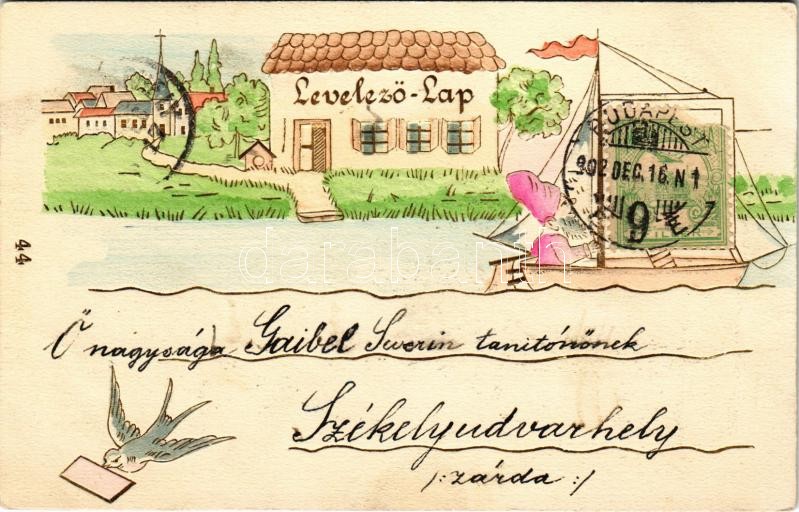 Levelező-Lap
BUDAPEST
902 DEC. 16. N 1
9 E
44
Ő nagysága Gaibel Swerin tanitónőnek
Székelyudvarhely
/: zárda :/
darabanth